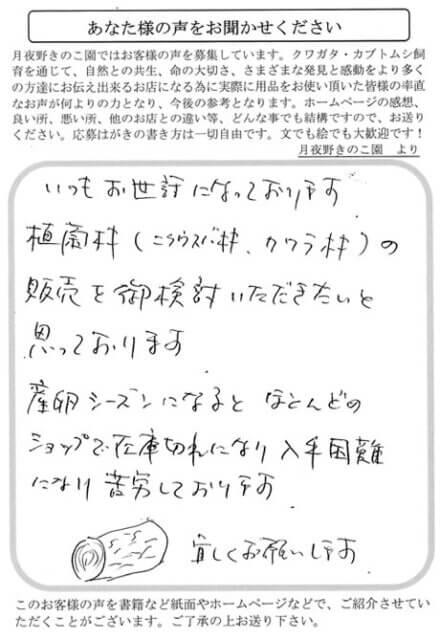 あなた様の声をお聞かせください
月夜野きのこ園ではお客様の声を募集しています。クワガタ・カブトムシ飼
育を通じて、自然との共生、命の大切さ、さまざまな発見と感動をより多く
の方達にお伝え出来るお店になる為に実際に用品をお使い頂いた皆様の率直
なお声が何よりの力となり、今後の参考となります。ホームページの感想、
良い所、悪い所、他のお店との違い等、どんな事でも結構ですので、お送り
ください。応募はがきの書き方は一切自由です。文でも絵でも大歓迎です！
月夜野きのこ園　より
いつもお世話になっております
植菌材（ニクウスバ材、カワラ材）の
販売を御検討いただきたいと
思っております
産卵シーズンになると ほとんどの
ショップで在庫切れになり入手困難
になり苦労しております
宜しくお願いします
このお客様の声を書籍など紙面やホームページなどで、ご紹介させてい
ただくことがございます。ご了承の上お送り下さい。